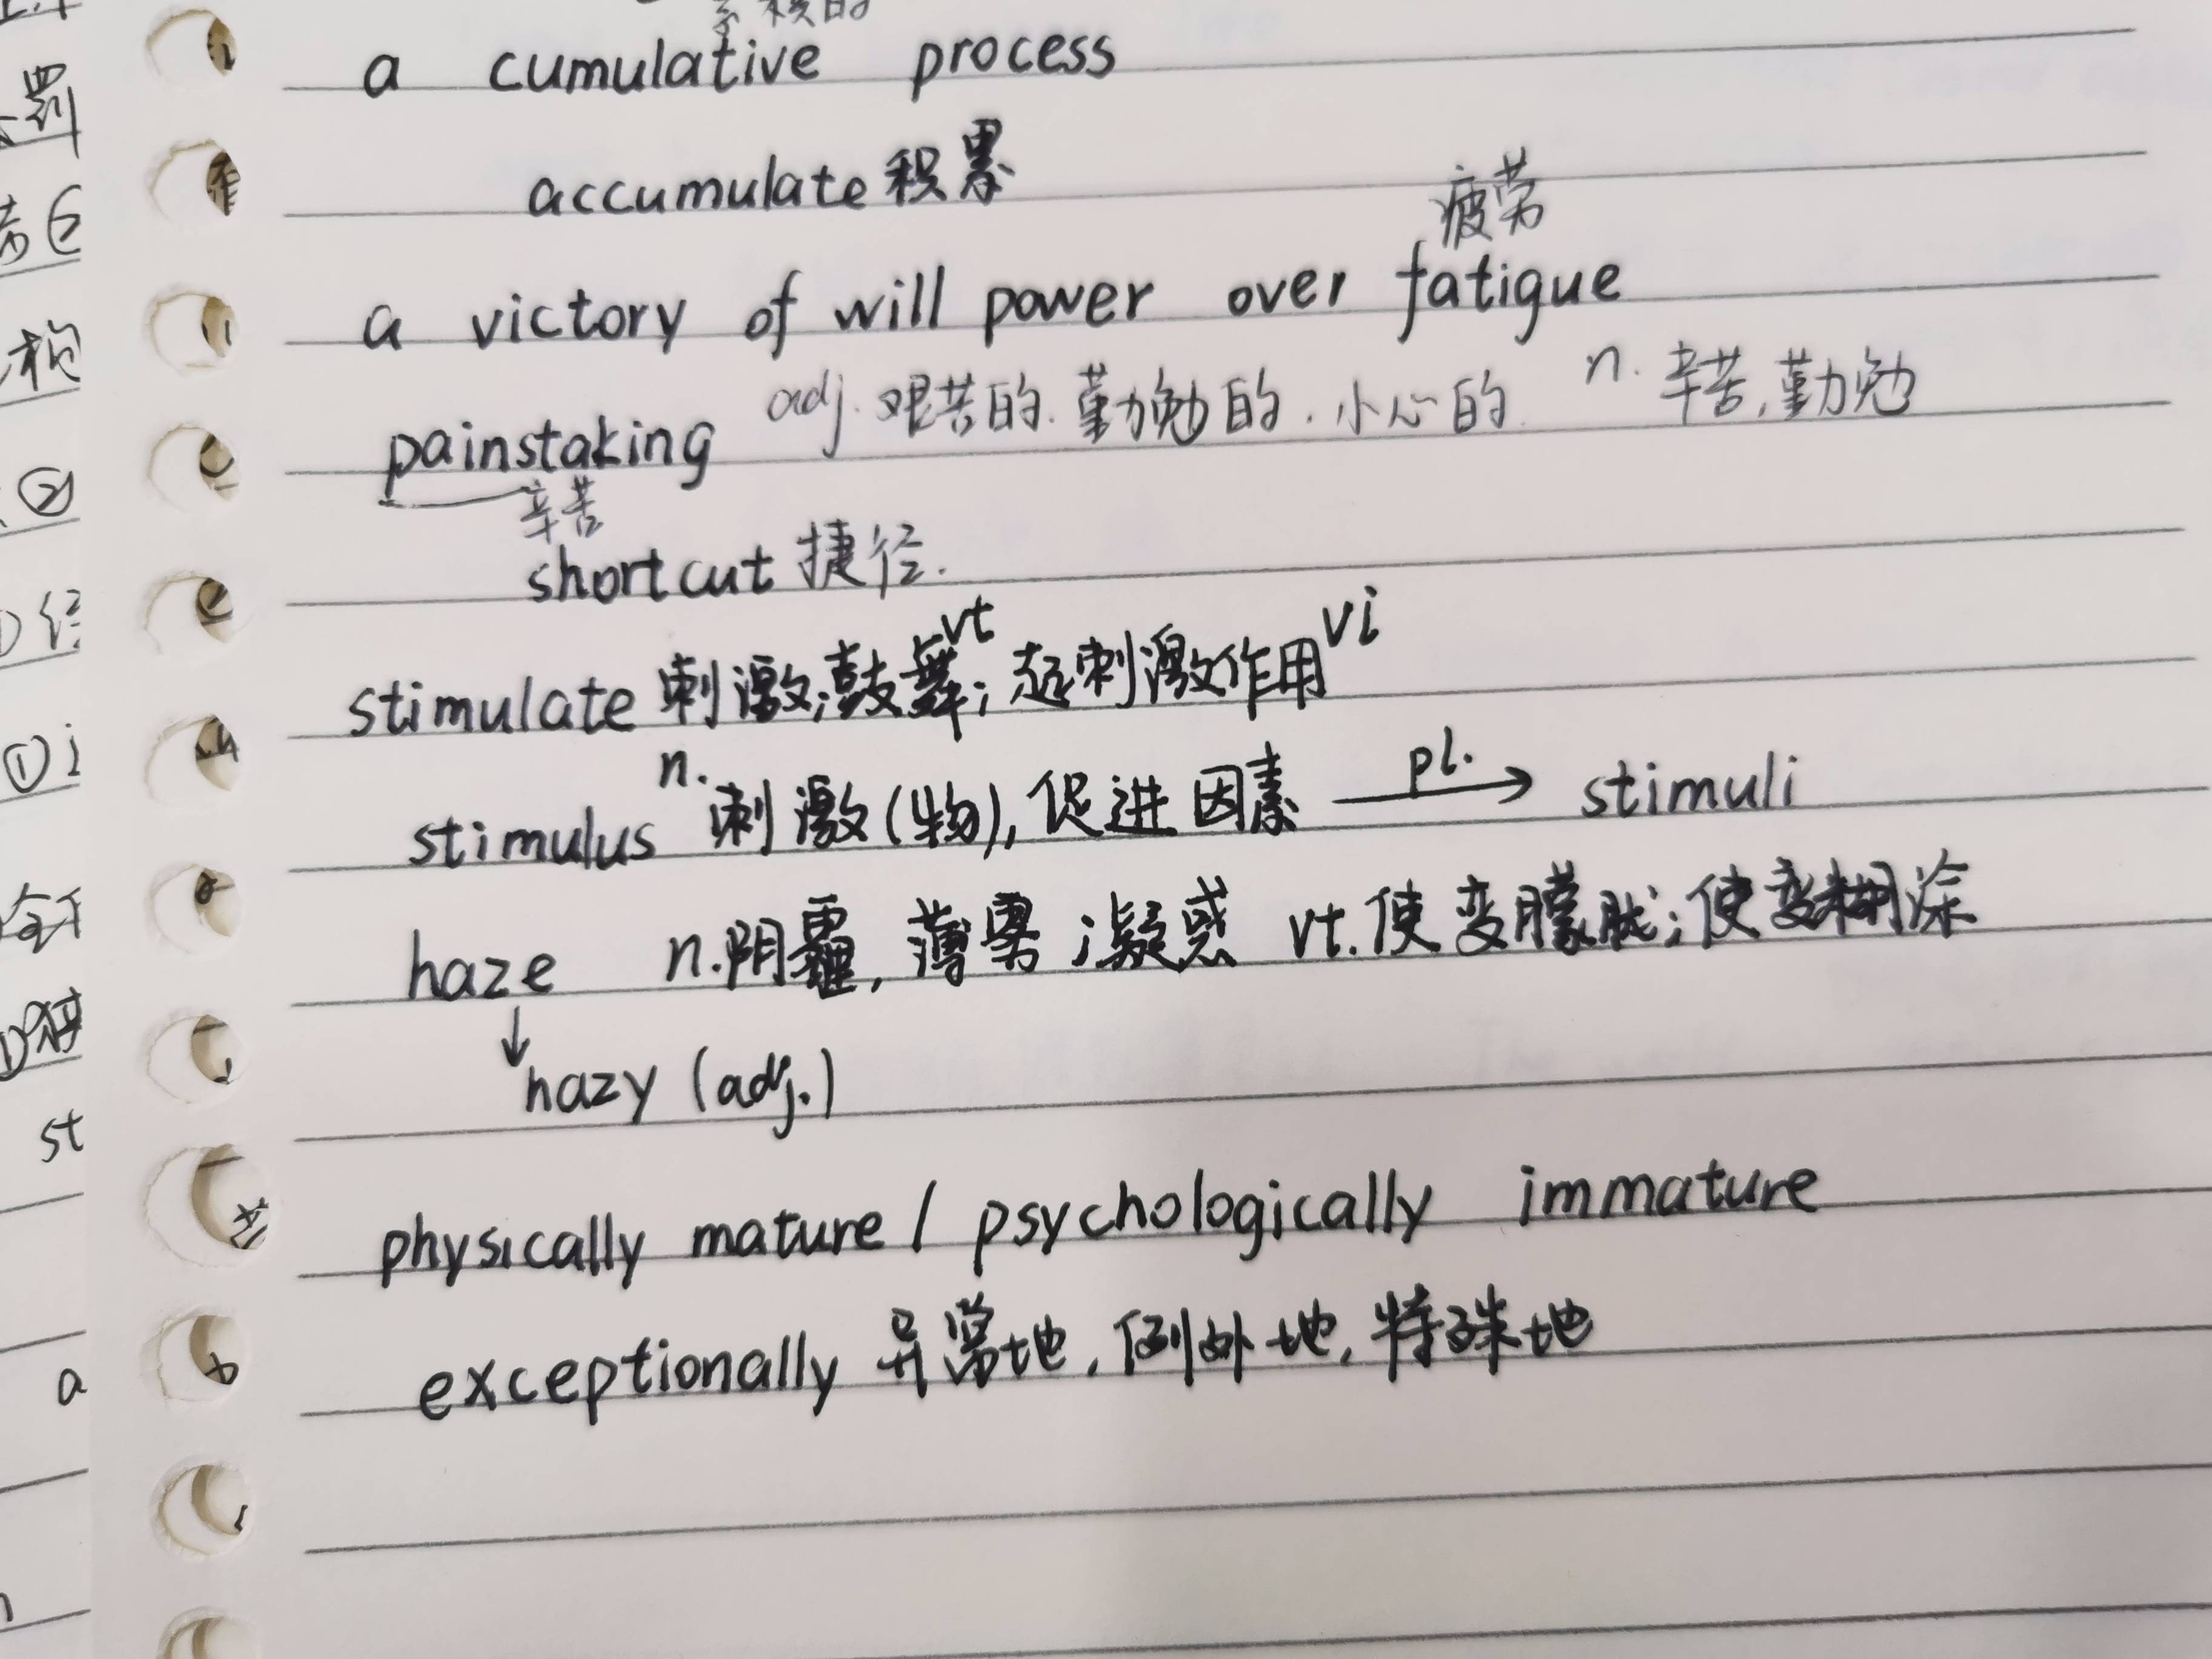 累积的
a cumulative process
accumulate 积累
疲劳
a victory of will power over fatigue
painstaking adj. 艰苦的. 勤勉的. 小心的. n. 辛苦, 勤勉
辛苦
shortcut 捷径.
stimulate 刺激;鼓舞vt; 起刺激作用vi
stimulus n. 刺激(物), 促进因素 pl. → stimuli
haze n.阴霾, 薄雾; 凝惑 vt.使变朦胧; 使变糊涂
↓
hazy (adj.)
physically mature / psychologically immature
exceptionally 异常地, 例外地, 特殊地
罚
②
①i
st
a